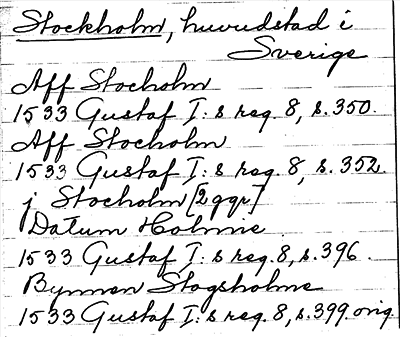 Stockholm, huvudstad i
Sverige
Aff Stocholm
1533 Gustaf I:s reg. 8, s. 350.
Aff Stocholm
1533 Gustaf I:s reg. 8, s. 352.
j Stocholm [2 ggr]
Datum Holmie
1533 Gustaf I:s reg. 8, s. 396.
Bymen Stogsholms
1533 Gustaf I:s reg. 8, s. 399 orig.